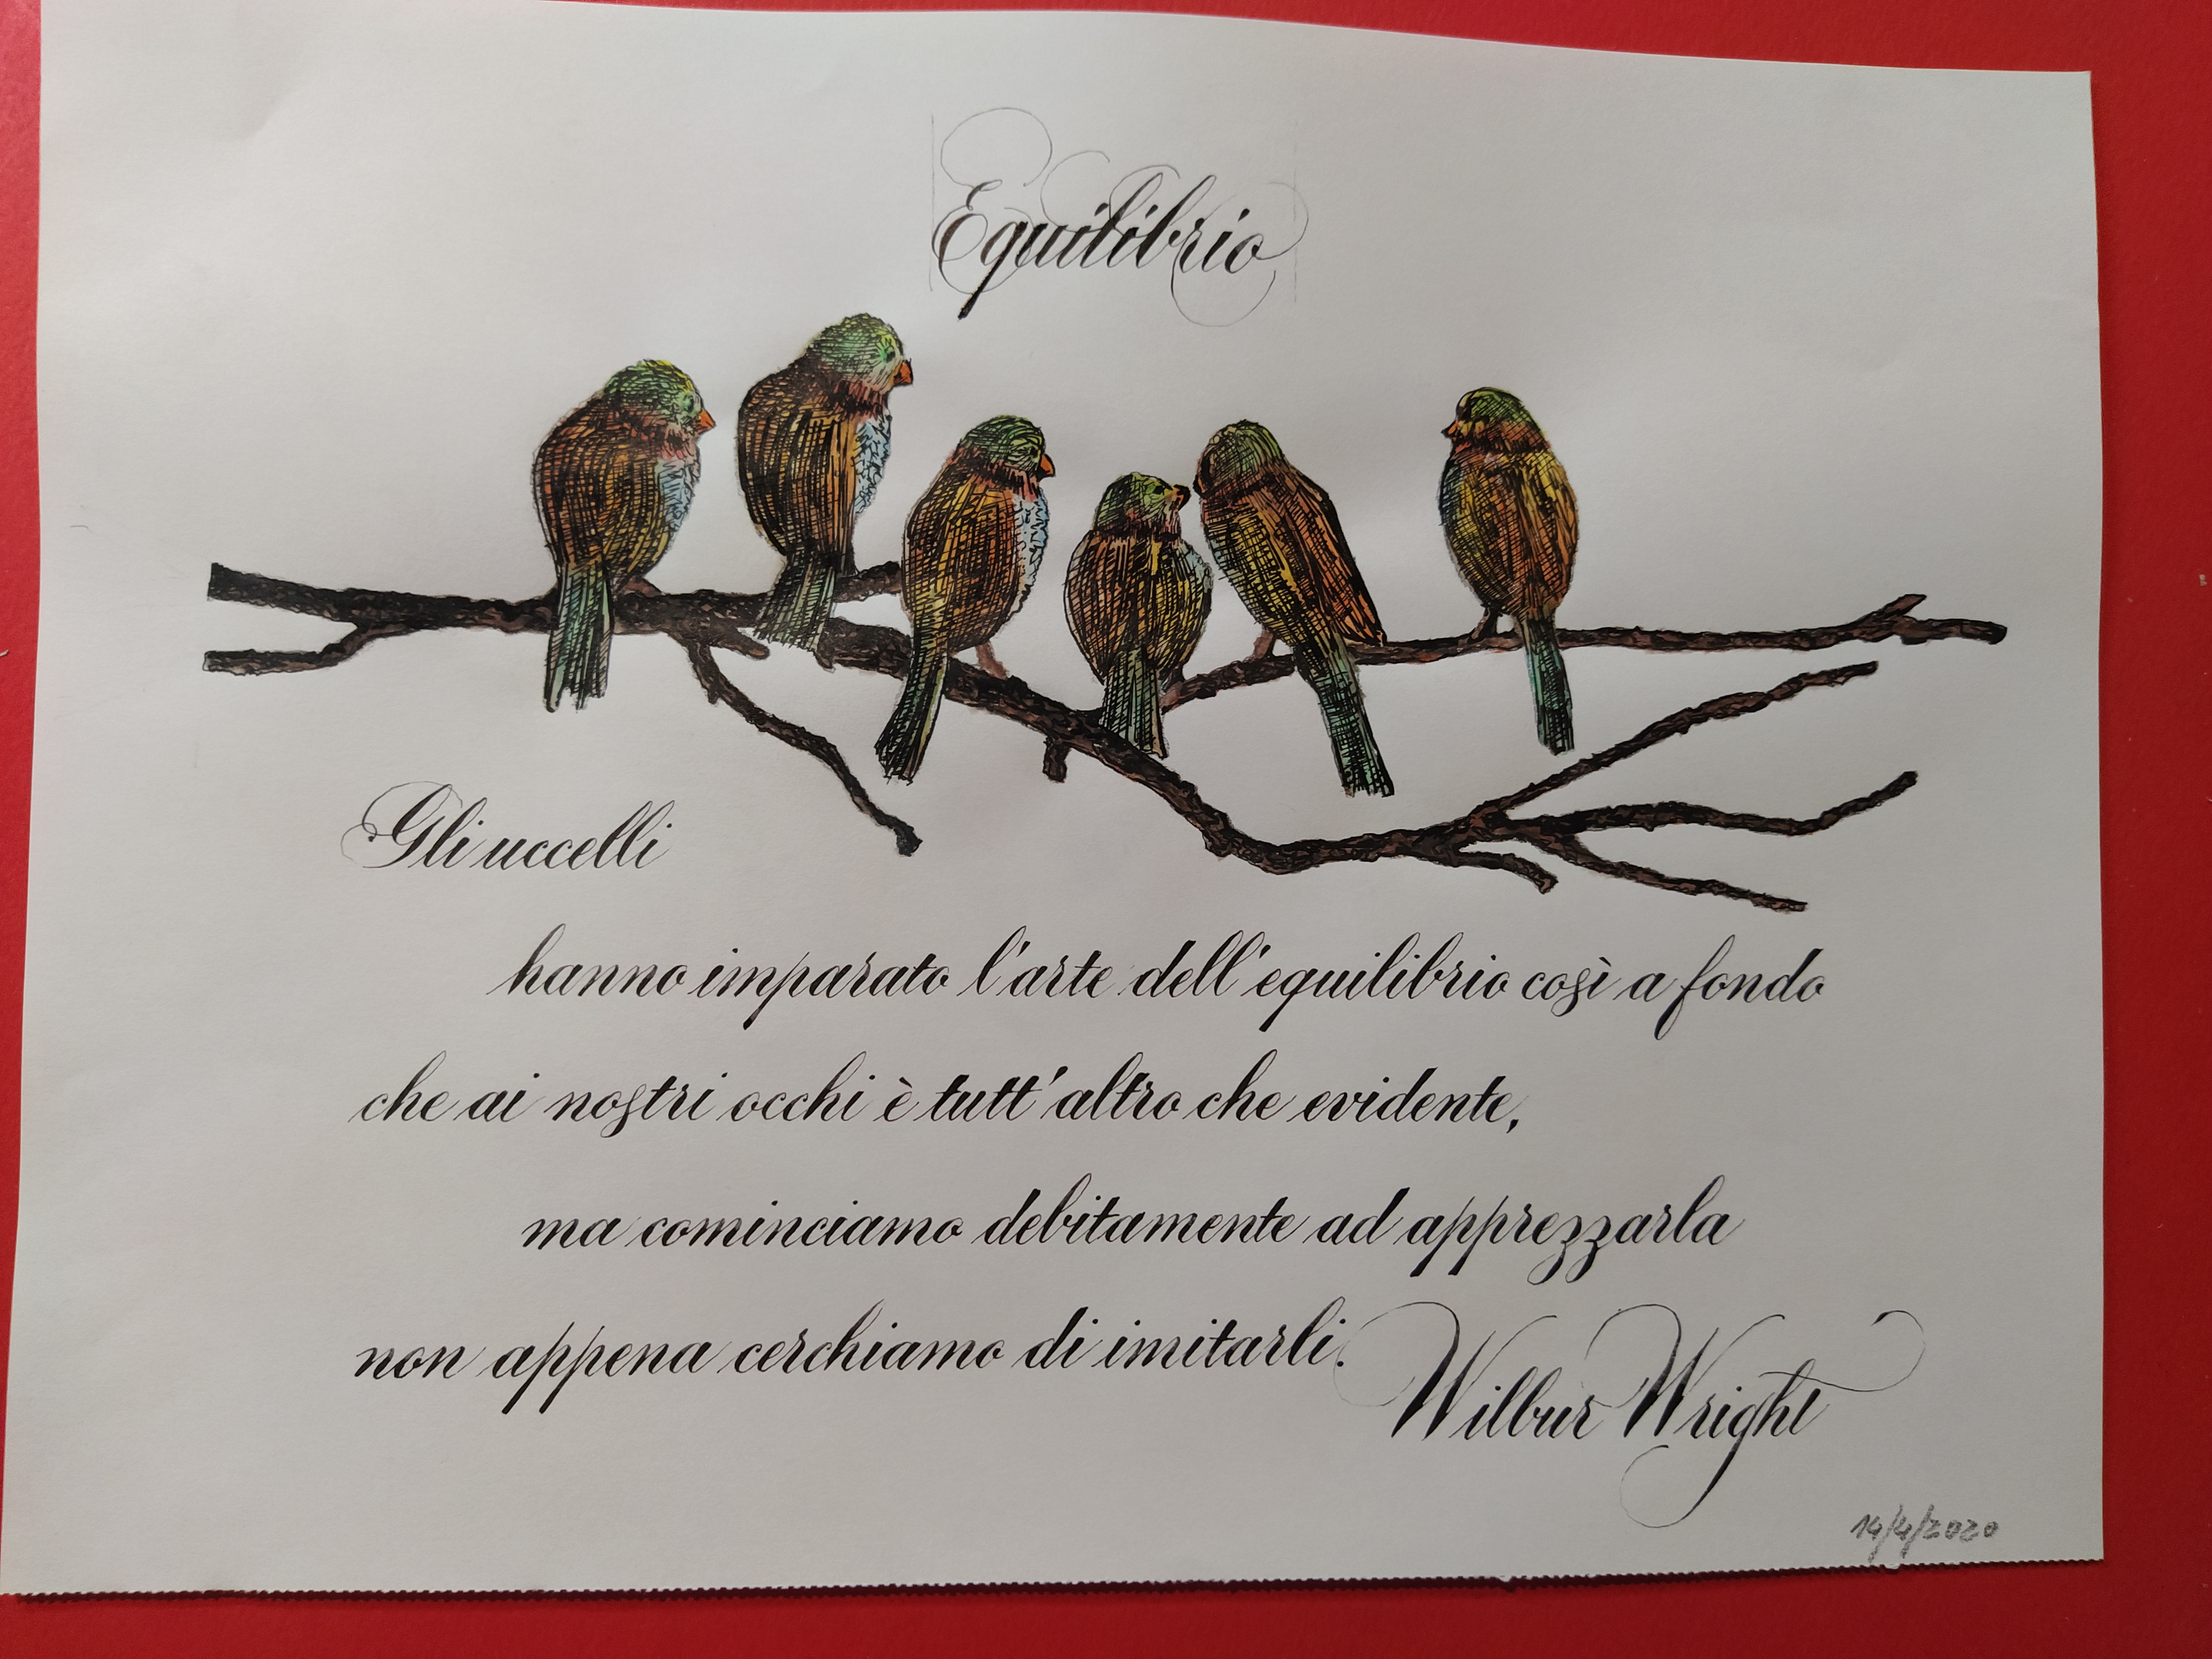 Equilibrio
Gli uccelli
hanno imparato l'arte dell'equilibrio così a fondo
che ai nostri occhi è tutt'altro che evidente,
ma cominciamo debitamente ad apprezzarla
non appena cerchiamo di imitarli.
Wilbur Wright
14/4/2020